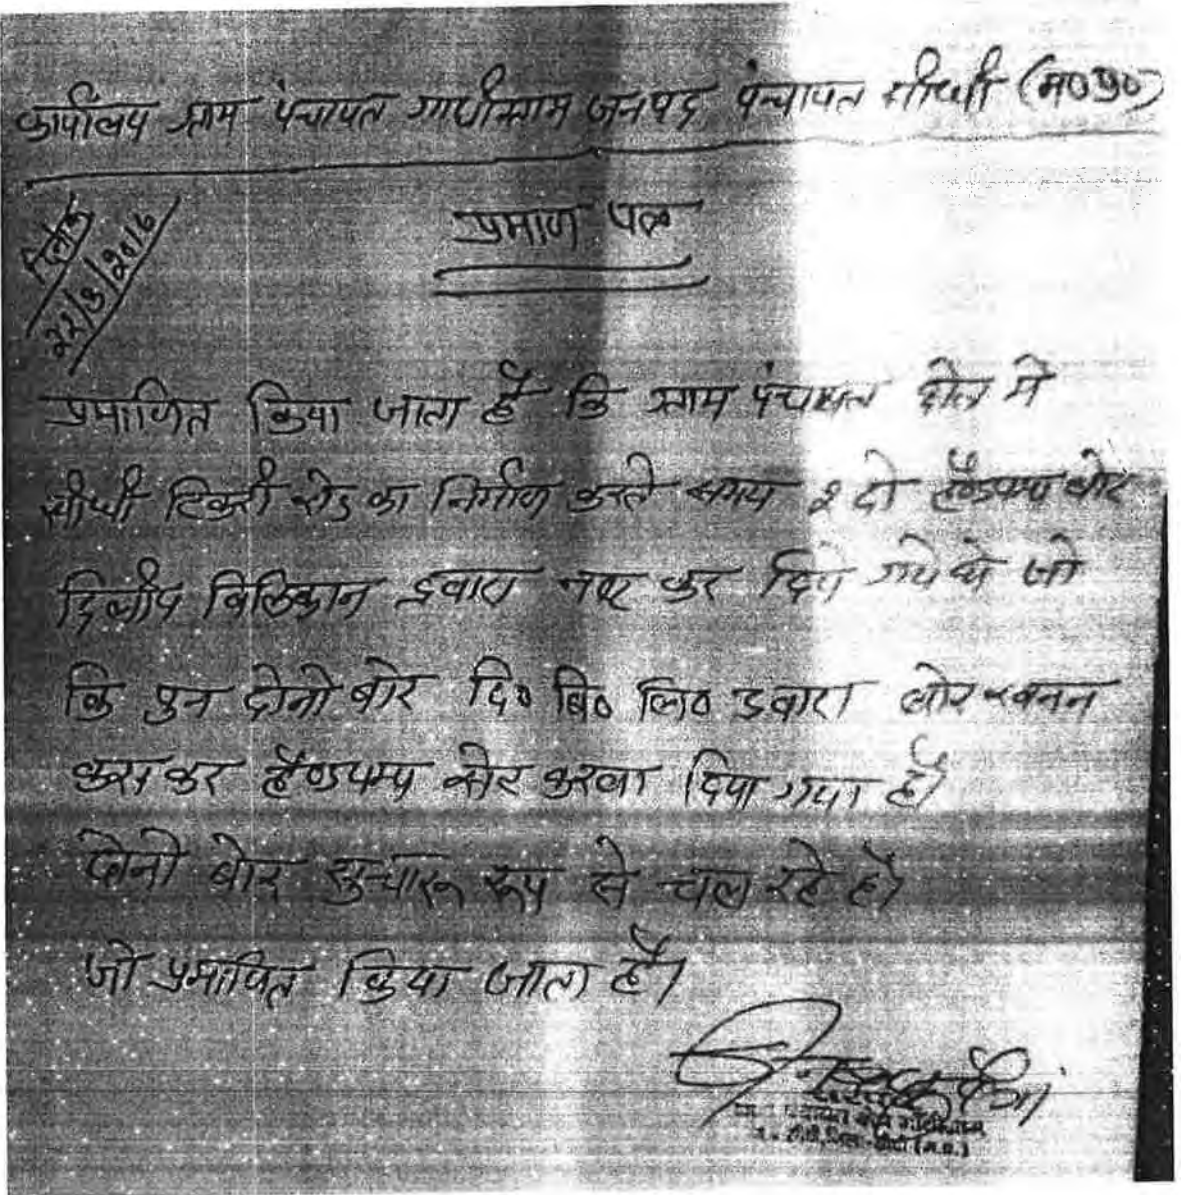 कार्यालय ग्राम पंचायत गांधीग्राम जनपद पंचायत सीधी (म०प्र०)
दिनांक
22/3/2016
प्रमाण पत्र
प्रमाणित किया जाता है कि ग्राम पंचायत में
सीधी टिकरी रोड का निर्माण करते समय 2 दो हैण्डपम्प बोर
दिलीप बिल्डिकान द्वारा नष्ट कर दिये गये थे जो
कि पुन दोनो बोर दि० बि० लि० द्वारा बोर खनन
करा कर हैण्डपम्प बोर करवा दिया गया है।
दोनो बोर सुचारू रूप से चल रहे है।
जो प्रमाणित किया जाता है।